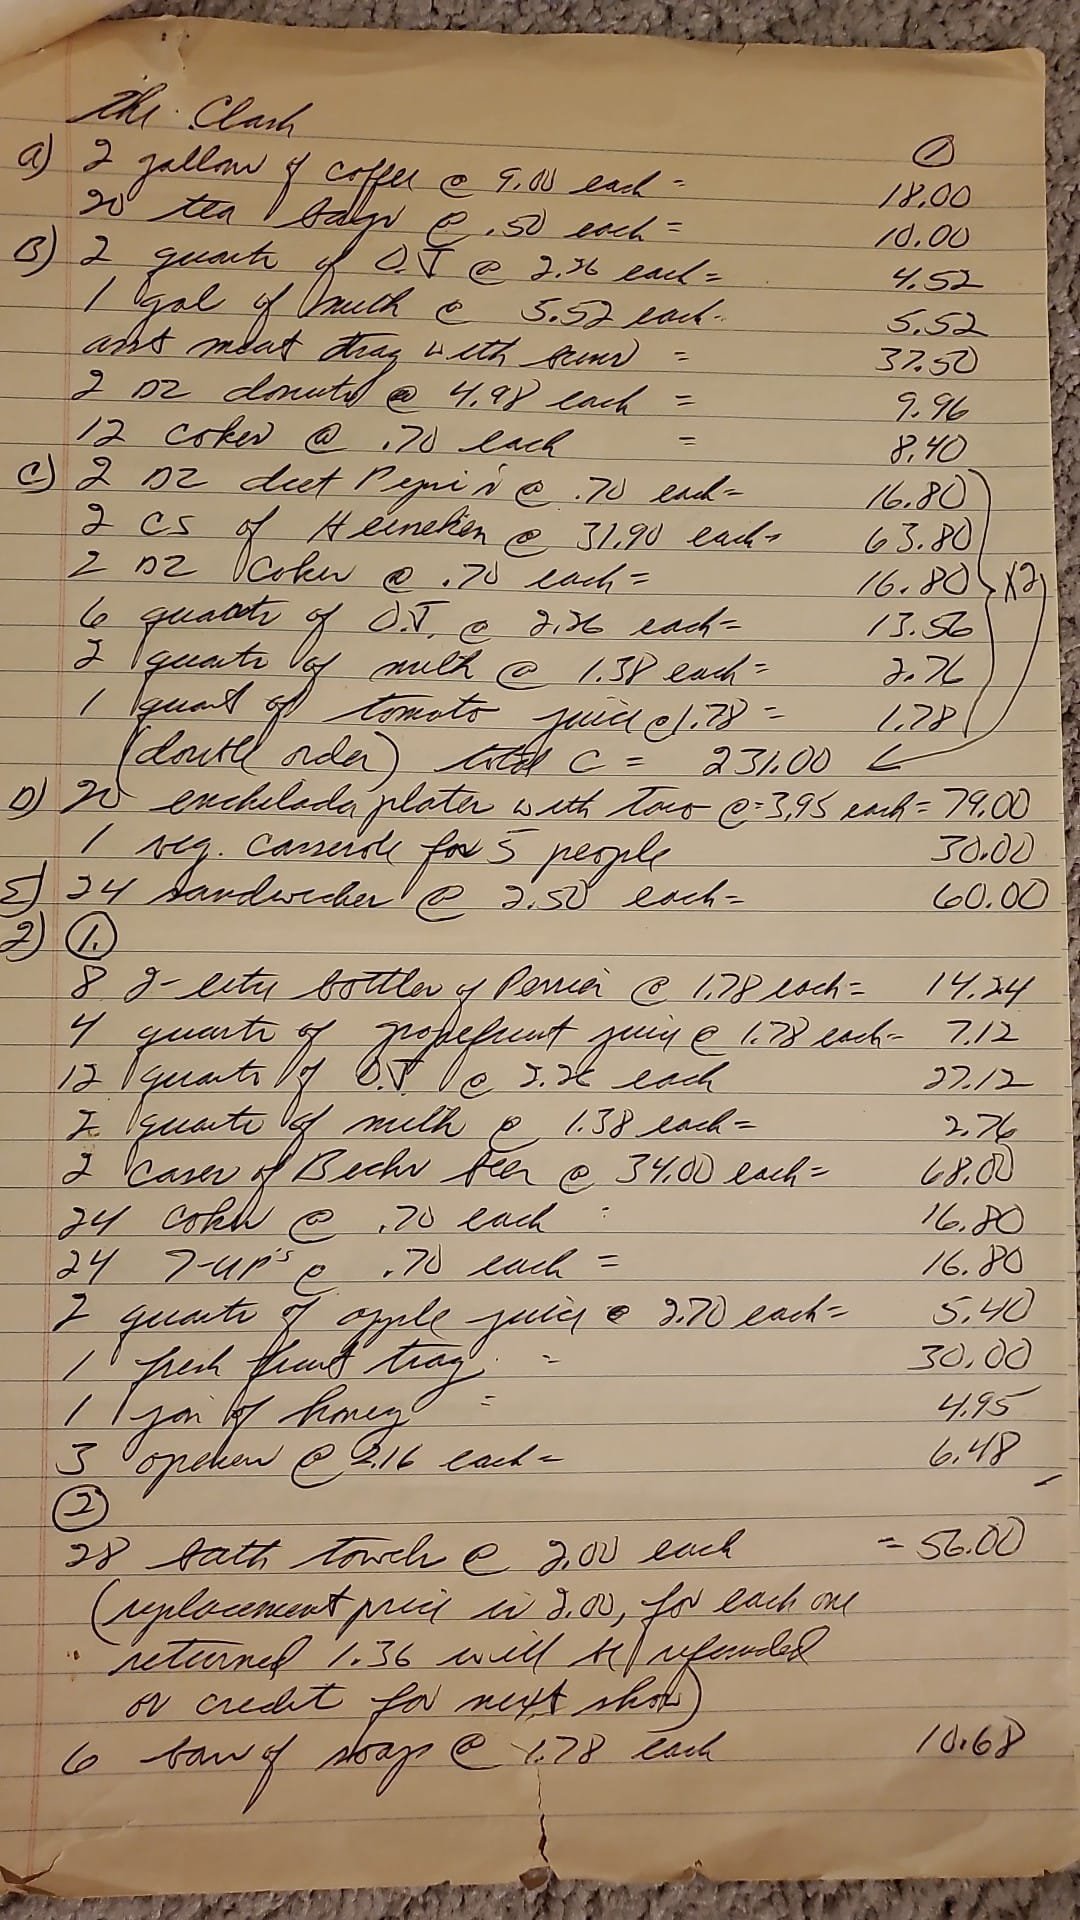 The Clash
①
a) 2 gallons of coffee @ 9.00 each = 18.00
20 tea bags @ .50 each = 10.00
B) 2 quarts of O.J @ 2.26 each = 4.52
1 gal of milk @ 5.52 each - 5.52
asst meat tray with buns = 37.50
2 DZ donuts @ 4.98 each = 9.96
12 cokes @ .70 each = 8.40
C) 2 DZ diet Pepsi's @ .70 each = 16.80
2 CS of Heineken @ 31.90 each = 63.80
2 DZ Cokes @ .70 each = 16.80 X2
6 quarts of O.J. @ 2.26 each = 13.56
2 quarts of milk @ 1.38 each = 2.76
1 quart of tomato juice @ 1.78 = 1.78
(double order) total C = 231.00
D) 20 enchilada plates with taco @ 3.95 each = 79.00
1 veg. casserole for 5 people 30.00
E) 24 sandwiches @ 2.50 each = 60.00
2) ①.
8 2-liter bottles of Perrier @ 1.78 each = 14.24
4 quarts of grapefruit juice @ 1.78 each - 7.12
12 quarts of O.J. @ 2.26 each 27.12
2 quarts of milk @ 1.38 each = 2.76
2 cases of Becks beer @ 34.00 each = 68.00
24 cokes @ .70 each : 16.80
24 7-UP's @ .70 each = 16.80
2 quarts of apple juice @ 2.70 each = 5.40
1 fresh fruit tray = 30.00
1 jar of honey = 4.95
3 openers @ 2.16 each = 6.48
②
28 bath towels @ 2.00 each = 56.00
(replacement price is 2.00, for each one
returned 1.36 will be refunded
or credit for next show)
6 bars of soap @ 1.78 each 10.68